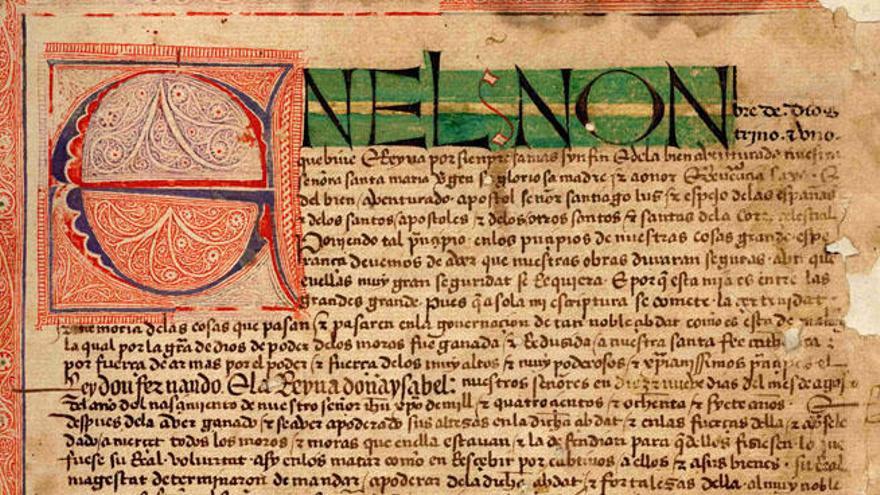 ENEL NON
bre de dios
trino & uno
que bive & Reyna por siempre jamas syn fin & dela bien aventurada nuestra
señora santa maria vgen su gloriosa madre & a onor & Reverencia
del bien aventurado apostol señor santiago lus & espejo delas españas
& delos santos apostoles & delos otros santos & santas dela corte celestial
Poniendo tal prinçipio enlos prinçipios de nuestras cosas grande espe
rança devemos de aver que nuestras obras duraran seguras
muy gran seguridat se Requiera & por q esta mia es entre las
grandes grande pues q a sola mi escriptura se comete la çertenidat
& memoria delas cosas que pasan & pasaren enla governaçion de tan noble çibdat como es esta de malaga
la qual por la gra de dios de poder delos moros fue ganada & Redusida a nuestra santa fee catholica
por fuerça de armas por el poder & fuerça delos muy altos & muy poderosos & xpianissimos prinçipes el
Rey don fernando & la Reyna doña ysabel nuestros señores en diez & nueve dias del mes de agos
del año del nasçimiento de nuestro señor ihu xpo de mill & quatroçientos & ochenta & syete años
despues dela aver ganado & se aver apoderado sus altezas enla dicha çibdat & enlas fuerças della &
dado a merçet todos los moros & moras que enella estavan & la defendian para q dellos fisiesen lo que
fuese su Real voluntat asy enlos matar como en Resçebir por cabtivos a ellos & a sus bienes su Real
magestat determinaron de mandar apoderar dela dicha çibdat & fortalezas della al muy noble